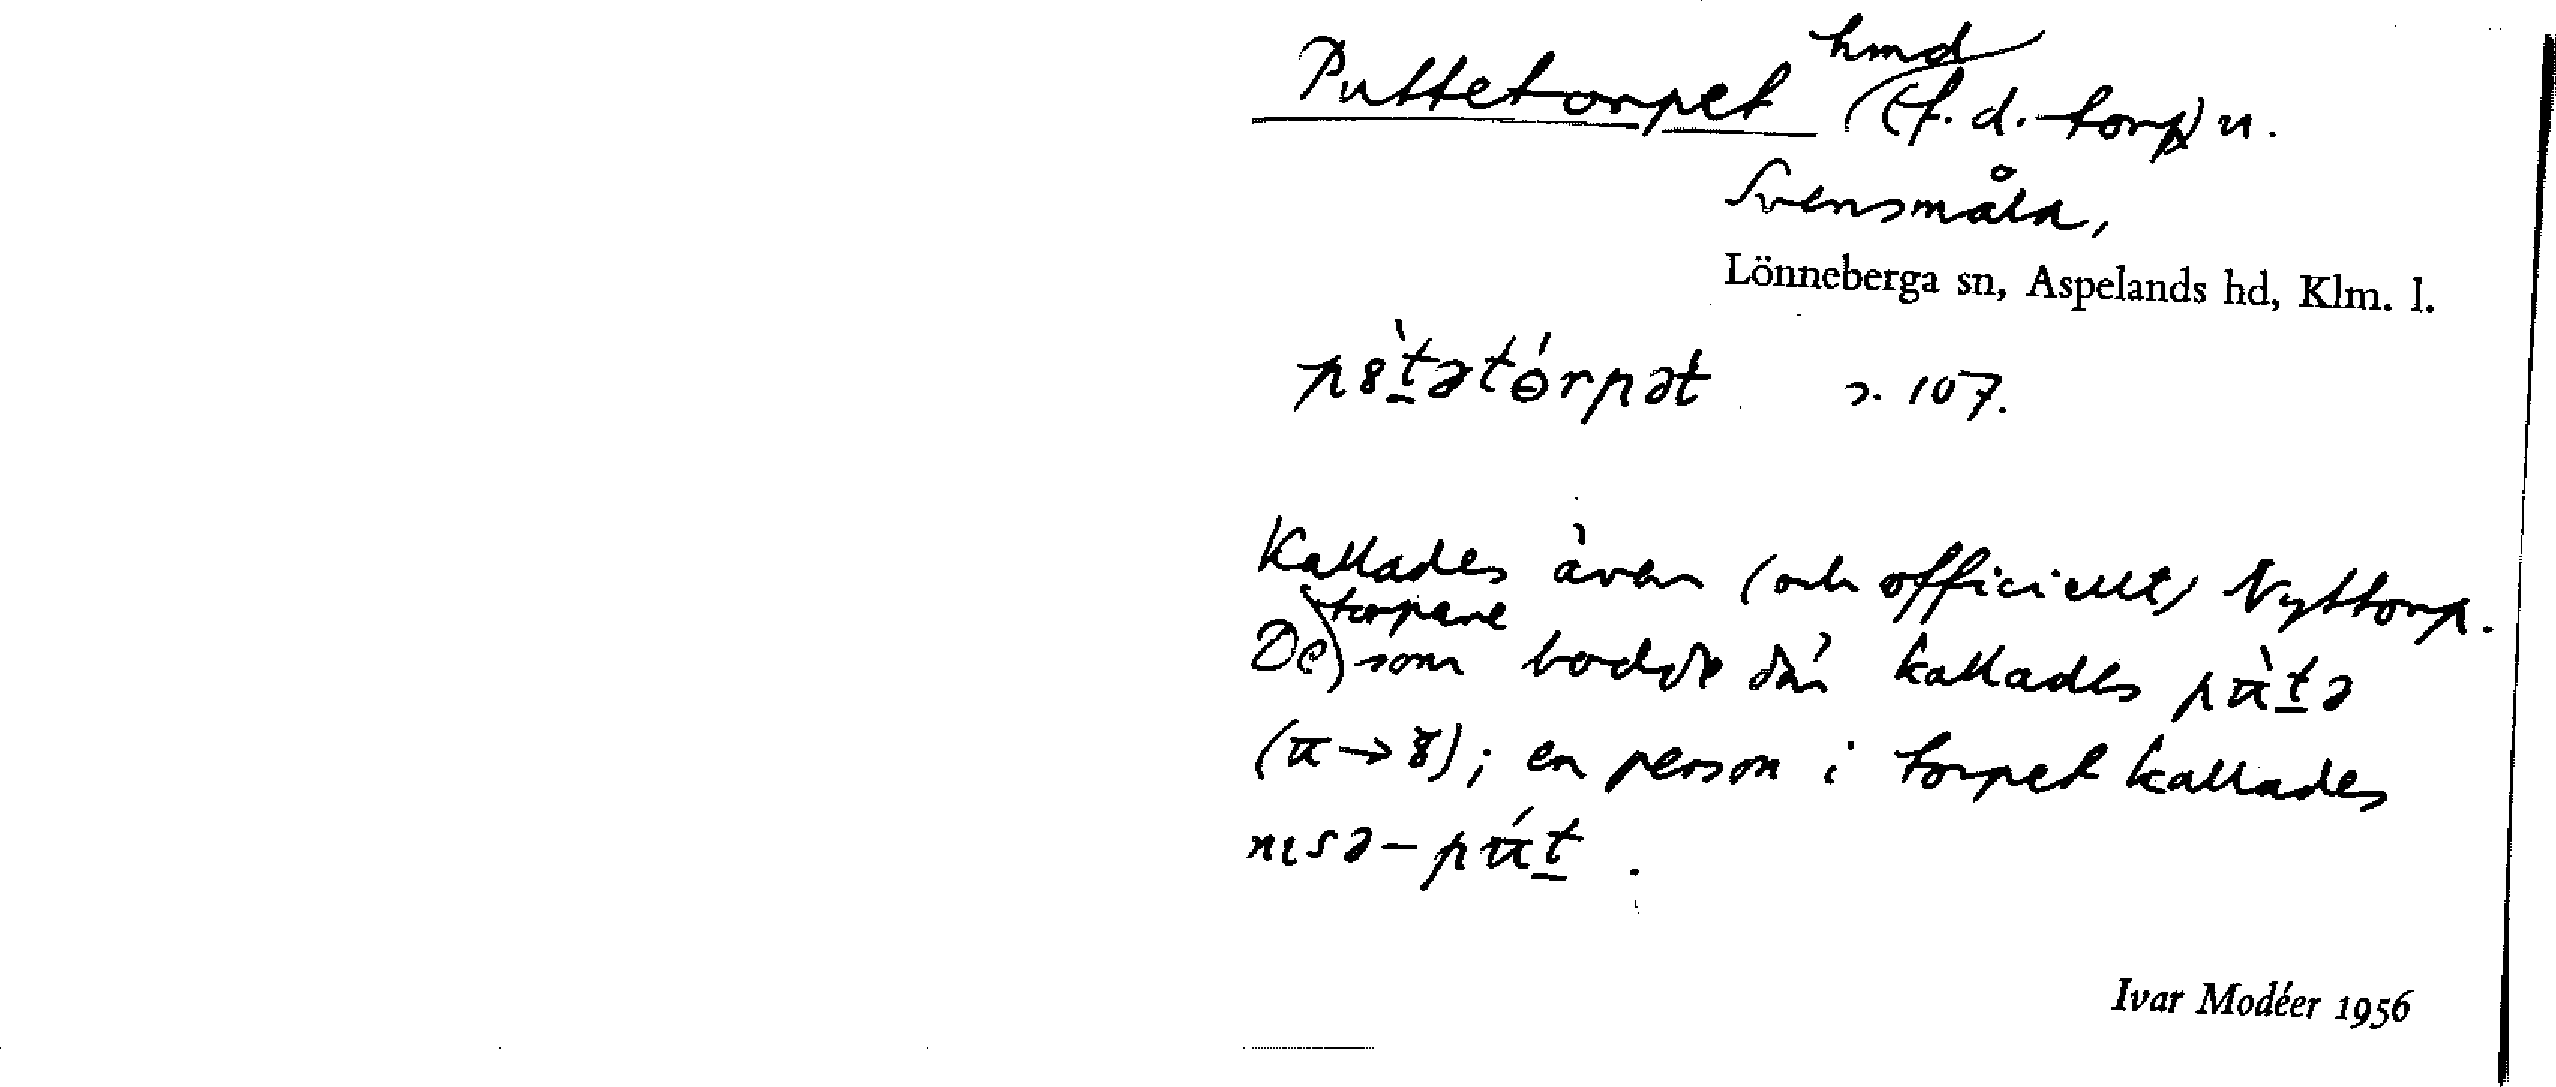 Puttetorpet hmd (f.d. torp) u.
Svensmåla,
Lönneberga sn, Aspelands hd, Klm. l.
s. 107.
Kallades även (och officiellt) Nyttorp.
De torpare som bodde där kallades
en person i torpet kallades
Ivar Modéer 1956